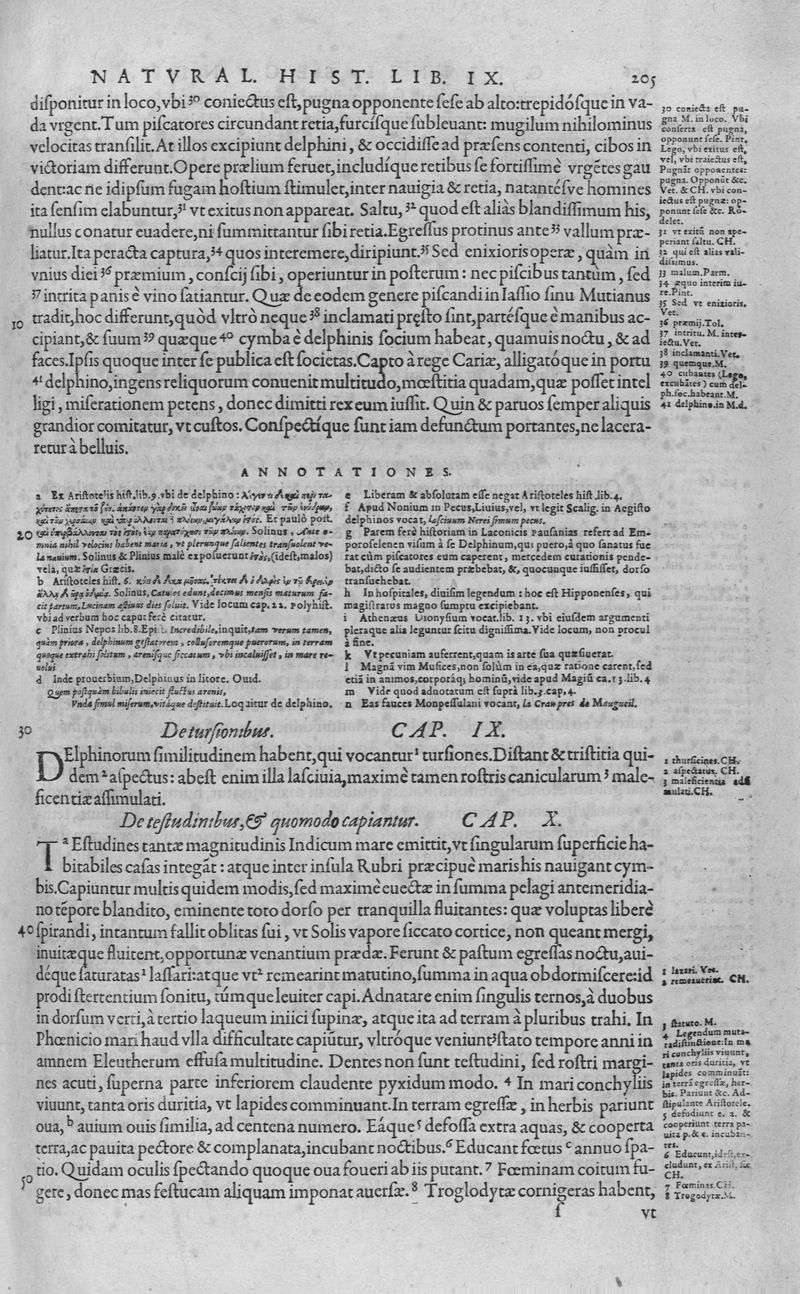 NATVRAL. HIST. LIB. IX. 205
diſponitur in loco,vbi ³⁰ coniectus eſt,pugna opponente ſeſe ab alto:trepidóſque in va-
da vrgent.Tum piſcatores circundant retia,furciſque ſubleuant: mugilum nihilominus
velocitas tranſilit.At illos excipiunt delphini, & occidiſſe ad præſens contenti, cibos in
victoriam differunt.Opere prælium feruet,includíque retibus ſe fortiſſimè vrgẽtes gau
dent:ac ne idipſum fugam hoſtium ſtimulet,inter nauigia & retia, natantéſve homines
ita ſenſim elabuntur,³¹ vt exitus non appareat. Saltu, ³² quod eſt aliàs blandiſſimum his,
nullus conatur euadere,ni ſummittantur ſibi retia.Egreſſus protinus ante ³³ vallum præ-
liatur.Ita peracta captura,³⁴ quos interemere,diripiunt.³⁵ Sed enixioris operæ, quàm in
vnius diei ³⁶ præmium, conſcij ſibi, operiuntur in poſterum : nec piſcibus tantùm, ſed
³⁷ intrita panis è vino ſatiantur. Quæ de eodem genere piſcandi in Iaſſio ſinu Mutianus
10 tradit,hoc differunt,quòd vltrò neque ³⁸ inclamati pręſto ſint,partéſque è manibus ac-
cipiant,& ſuum ³⁹ quæque ⁴⁰ cymba è delphinis ſocium habeat, quamuis noctu, & ad
faces.Ipſis quoque inter ſe publica eſt ſocietas.Capto à rege Cariæ, alligatóque in portu
⁴¹ delphino,ingens reliquorum conuenit multitudo,mœſtitia quadam,quæ poſſet intel
ligi, miſerationem petens, donec dimitti rex eum iuſſit. Quin & paruos ſemper aliquis
grandior comitatur, vt cuſtos. Conſpectíque ſunt iam defunctum portantes,ne lacera-
retur à belluis.
30 coniecta eſt pu-
gna M. in loco. Vbi
conferta eſt pugna,
opponunt ſeſe. Pint.
Lego, vbi exitus eſt,
vel, vbi traiectus eſt,
Pugnãt opponentes:
pugna. Opponũt &c.
Vet. & CH. vbi con-
iectus eſt pugnæ: op-
ponunt ſeſe &c. Ro-
delet.
31 vt exitũ non ape-
periant ſaltu. CH.
32 qui eſt alias vali-
diſſimus.
33 malum.Parm.
34 æquo interim iu-
re.Pint.
35 Sed vt enixioris.
Vet.
36 præmij.Tol.
37 intritu. M. inter-
iectu.Vet.
38 inclamanti.Vet.
39 quemque.M.
40 cubantes (Lego,
excubãtes) cum del-
ph.ſoc.habeant.M.
41 delphino.in M.d.
ANNOTATIONES.
a Ex Ariſtotelis hiſt.lib.9.vbi de delphino :
Et paulò poſt.
20 Solinus, Ante o-
mnia nihil velocius habent maria, vt plerunque ſalientes tranſuolent ve-
la nauium. Solinus & Plinius malè expoſuerunt ἱςὸς,(ideſt,malos)
vela, quæ ἱςία Græcis.
b Ariſtoteles hiſt. 6.
Solinus, Catulos edunt,decimus menſis maturum fa-
cit partum, Lucinam æſtiuus dies ſoluit. Vide locum cap.22. Polyhiſt.
vbi ad verbum hoc caput ferè citatur.
c Plinius Nepos lib.8.Epiſt. Incredibile,inquit,tam verum tamen,
quàm priora, delphinum geſtatorem, colluſoremque puerorum, in terram
quoque extrahi ſolitum, areníſque ſiccatum, vbi incaluiſſet, in mare re-
uolui
d Inde prouerbium,Delphinus in litore. Ouid.
Quem poſtquàm bibulis iniecit fluctus arenis,
Vnda ſimul miſerum,vitáque deſtituit.Loqaitur de delphino.
e Liberam & abſolutam eſſe negat Ariſtoteles hiſt.lib.4.
f Apud Nonium in Pecus,Liuius,vel, vt legit Scalig. in Aegiſto
delphinos vocat, laſciuum Nerei ſimum pecus.
g Parem ferè hiſtoriam in Laconicis Pauſanias refert ad Em-
poroſelenen viſum à ſe Delphinum,qui puero,à quo ſanatus fue
rat cùm piſcatores eum caperent, mercedem curationis pende-
bat,dicto ſe audientem præbebat, &, quocunque iuſſiſſet, dorſo
tranſuehebat.
h In hoſpitales, diuiſim legendum : hoc eſt Hipponenſes, qui
magiſtratus magno ſumptu excipiebant.
i Athenæus Dionyſium vocat.lib. 13. vbi eiuſdem argumenti
pleraque alia leguntur ſcitu digniſſima.Vide locum, non procul
à fine.
k Vt pecuniam auferrent,quam is arte ſua quæſiuerat.
l Magnã vim Muſices,non ſolùm in ea,quæ ratione carent,ſed
etiã in animos,corporáq; hominũ,vide apud Magiũ ca.13.lib.4
m Vide quod adnotatum eſt ſuprà lib.3.cap.4.
n Eas fauces Monpeſſulani vocant, la Crau pres de Maugueil.
30 De turſionibus. CAP. IX.
DElphinorum ſimilitudinem habent,qui vocantur¹ turſiones.Diſtant & triſtitia qui-
dem ² aſpectus: abeſt enim illa laſciuia,maximè tamen roſtris canicularum ³ male-
ficentiæ aſſimulati.
1 thurſiones.CH.
2 aſpectatus. CH.
3 maleficientia adſi
mulati.CH.
De teſtudinibus,& quomodo capiantur. CAP. X.
TªEſtudines tantæ magnitudinis Indicum mare emittit,vt ſingularum ſuperficie ha-
bitabiles caſas integãt : atque inter inſula Rubri præcipuè maris his nauigant cym-
bis.Capiuntur multis quidem modis,ſed maximè euectæ in ſumma pelagi antemeridia-
no tẽpore blandito, eminente toto dorſo per tranquilla fluitantes: quæ voluptas liberè
40 ſpirandi, intantum fallit oblitas ſui, vt Solis vapore ſiccato cortice, non queant mergi,
inuitæque fluitent,opportunæ venantium prædæ.Ferunt & paſtum egreſſas noctu,aui-
déque ſaturatas¹ laſſari:atque vt² remearint matutino,ſumma in aqua obdormiſcere:id
prodi ſtertentium ſonitu, túmque leuiter capi.Adnatare enim ſingulis ternos,à duobus
in dorſum verti,à tertio laqueum iniici ſupinæ, atque ita ad terram à pluribus trahi. In
Phœnicio mari haud vlla difficultate capiũtur, vltróque veniunt³ſtato tempore anni in
amnem Eleutherum effuſa multitudine. Dentes non ſunt teſtudini, ſed roſtri margi-
nes acuti, ſuperna parte inferiorem claudente pyxidum modo. ⁴ In mari conchyliis
viuunt, tanta oris duritia, vt lapides comminuant.In terram egreſſæ, in herbis pariunt
oua, ᵇ auium ouis ſimilia, ad centena numero. Eáque⁵ defoſſa extra aquas, & cooperta
terra,ac pauita pectore & complanata,incubant noctibus.⁶ Educant fœtus ᶜ annuo ſpa-
50 tio. Quidam oculis ſpectando quoque oua foueri ab iis putant.⁷ Fœminam coitum fu-
gere, donec mas feſtucam aliquam imponat auerſæ.⁸ Troglodytæ cornigeras habent,
1 laxari. Vet.
2 remeauerint. CH.
3 ſtatuto. M.
4 Legendum muta-
ta diſtinctione:In ma
ri conchyliis viuunt,
tanta oris duritia, vt
lapides comminuãt:
in terrã egreſſæ, her-
bis. Pariunt &c. Ad-
ſtipulante Ariſtotele.
5 defodiunt e. a. &
cooperiunt terra pa-
uita p.& c. incuban-
tes.
6 Educunt,ideſt,ex-
cludunt, ex Ariſt. ſic
CH.
7 Fœminas.CH.
8 Trogodytæ.M.
ſ vt